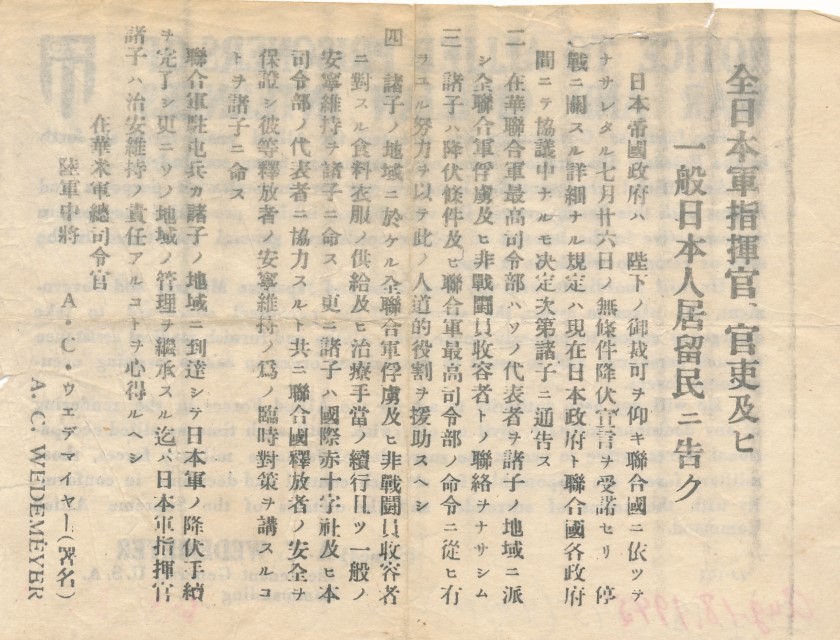 全日本軍指揮官、官吏及ヒ
一般日本人居留民ニ告ク
一 日本帝國政府ハ 陛下ノ御裁可ヲ仰キ聯合國ニ依ツテ
ナサレタル七月廿六日ノ無條件降伏宣言ヲ受諾セリ 停
戰ニ關スル詳細ナル規定ハ現在日本政府ト聯合國各政府
間ニテ協議中ナルモ决定次第諸子ニ通告ス
二 在華聯合軍最高司令部ハソノ代表者ヲ諸子ノ地域ニ派
シ全聯合軍俘虜及ヒ非戰鬪員收容者トノ聯絡ヲナサシム
三 諸子ハ降伏條件及ヒ聯合軍最高司令部ノ命令ニ從ヒ有
ラユル努力ヲ以テ此ノ人道的役割ヲ援助スヘシ
四 諸子ノ地域ニ於ケル全聯合軍俘虜及ヒ非戰鬪員收容者
ニ對スル食料衣服ノ供給及ヒ治療手當ノ續行且ツ一般ノ
安寧維持ヲ諸子ニ命ス 更ニ諸子ハ國際赤十字社及ヒ本
司令部ノ代表者ニ協力スルト共ニ聯合國釋放者ノ安全ヲ
保證シ彼等釋放者ノ安寧維持ノ爲ノ臨時對策ヲ講スルコ
トヲ諸子ニ命ス
聯合軍駐屯兵カ諸子ノ地域ニ到達シテ日本軍ノ降伏手續
ヲ完了シ更ニソノ地域ノ管理ヲ繼承スル迄ハ日本軍指揮官
諸子ハ治安維持ノ責任アルコトヲ心得ルヘシ
在華米軍總司令官
陸軍中將 A・C・ウエデマイヤー(署名)
A. C. WEDEMEYER